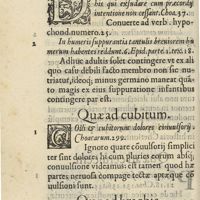 his qui exsudare cum præcordij
intentione non cessant. Choa.37.
Conuerte ad verb. hypo-
chond. numero.25.
In humeris suppurantia tantula breuiorem hu
merum habentes reddunt. 6. Epid. parte.1. tex.18.
Adhuc adultis solet contingere vt ex ali
quo casu debili facto membro non sic nu
triatur, ideoq; minus germano maneat: quan
to magis ex eius suppuratione infantibus
contingere par est.
Quæ ad cubitum.
& cubitorum dolores conuulsorij:
Choacarum.299.
Ignoto quare cōuulsorij simplici
ter sint dolores: hi cum plurium eorum absci
conuulsione videamus: est tamen quod hæ
partes neruosa compage testæ aptæque cō
uulsioni sunt.